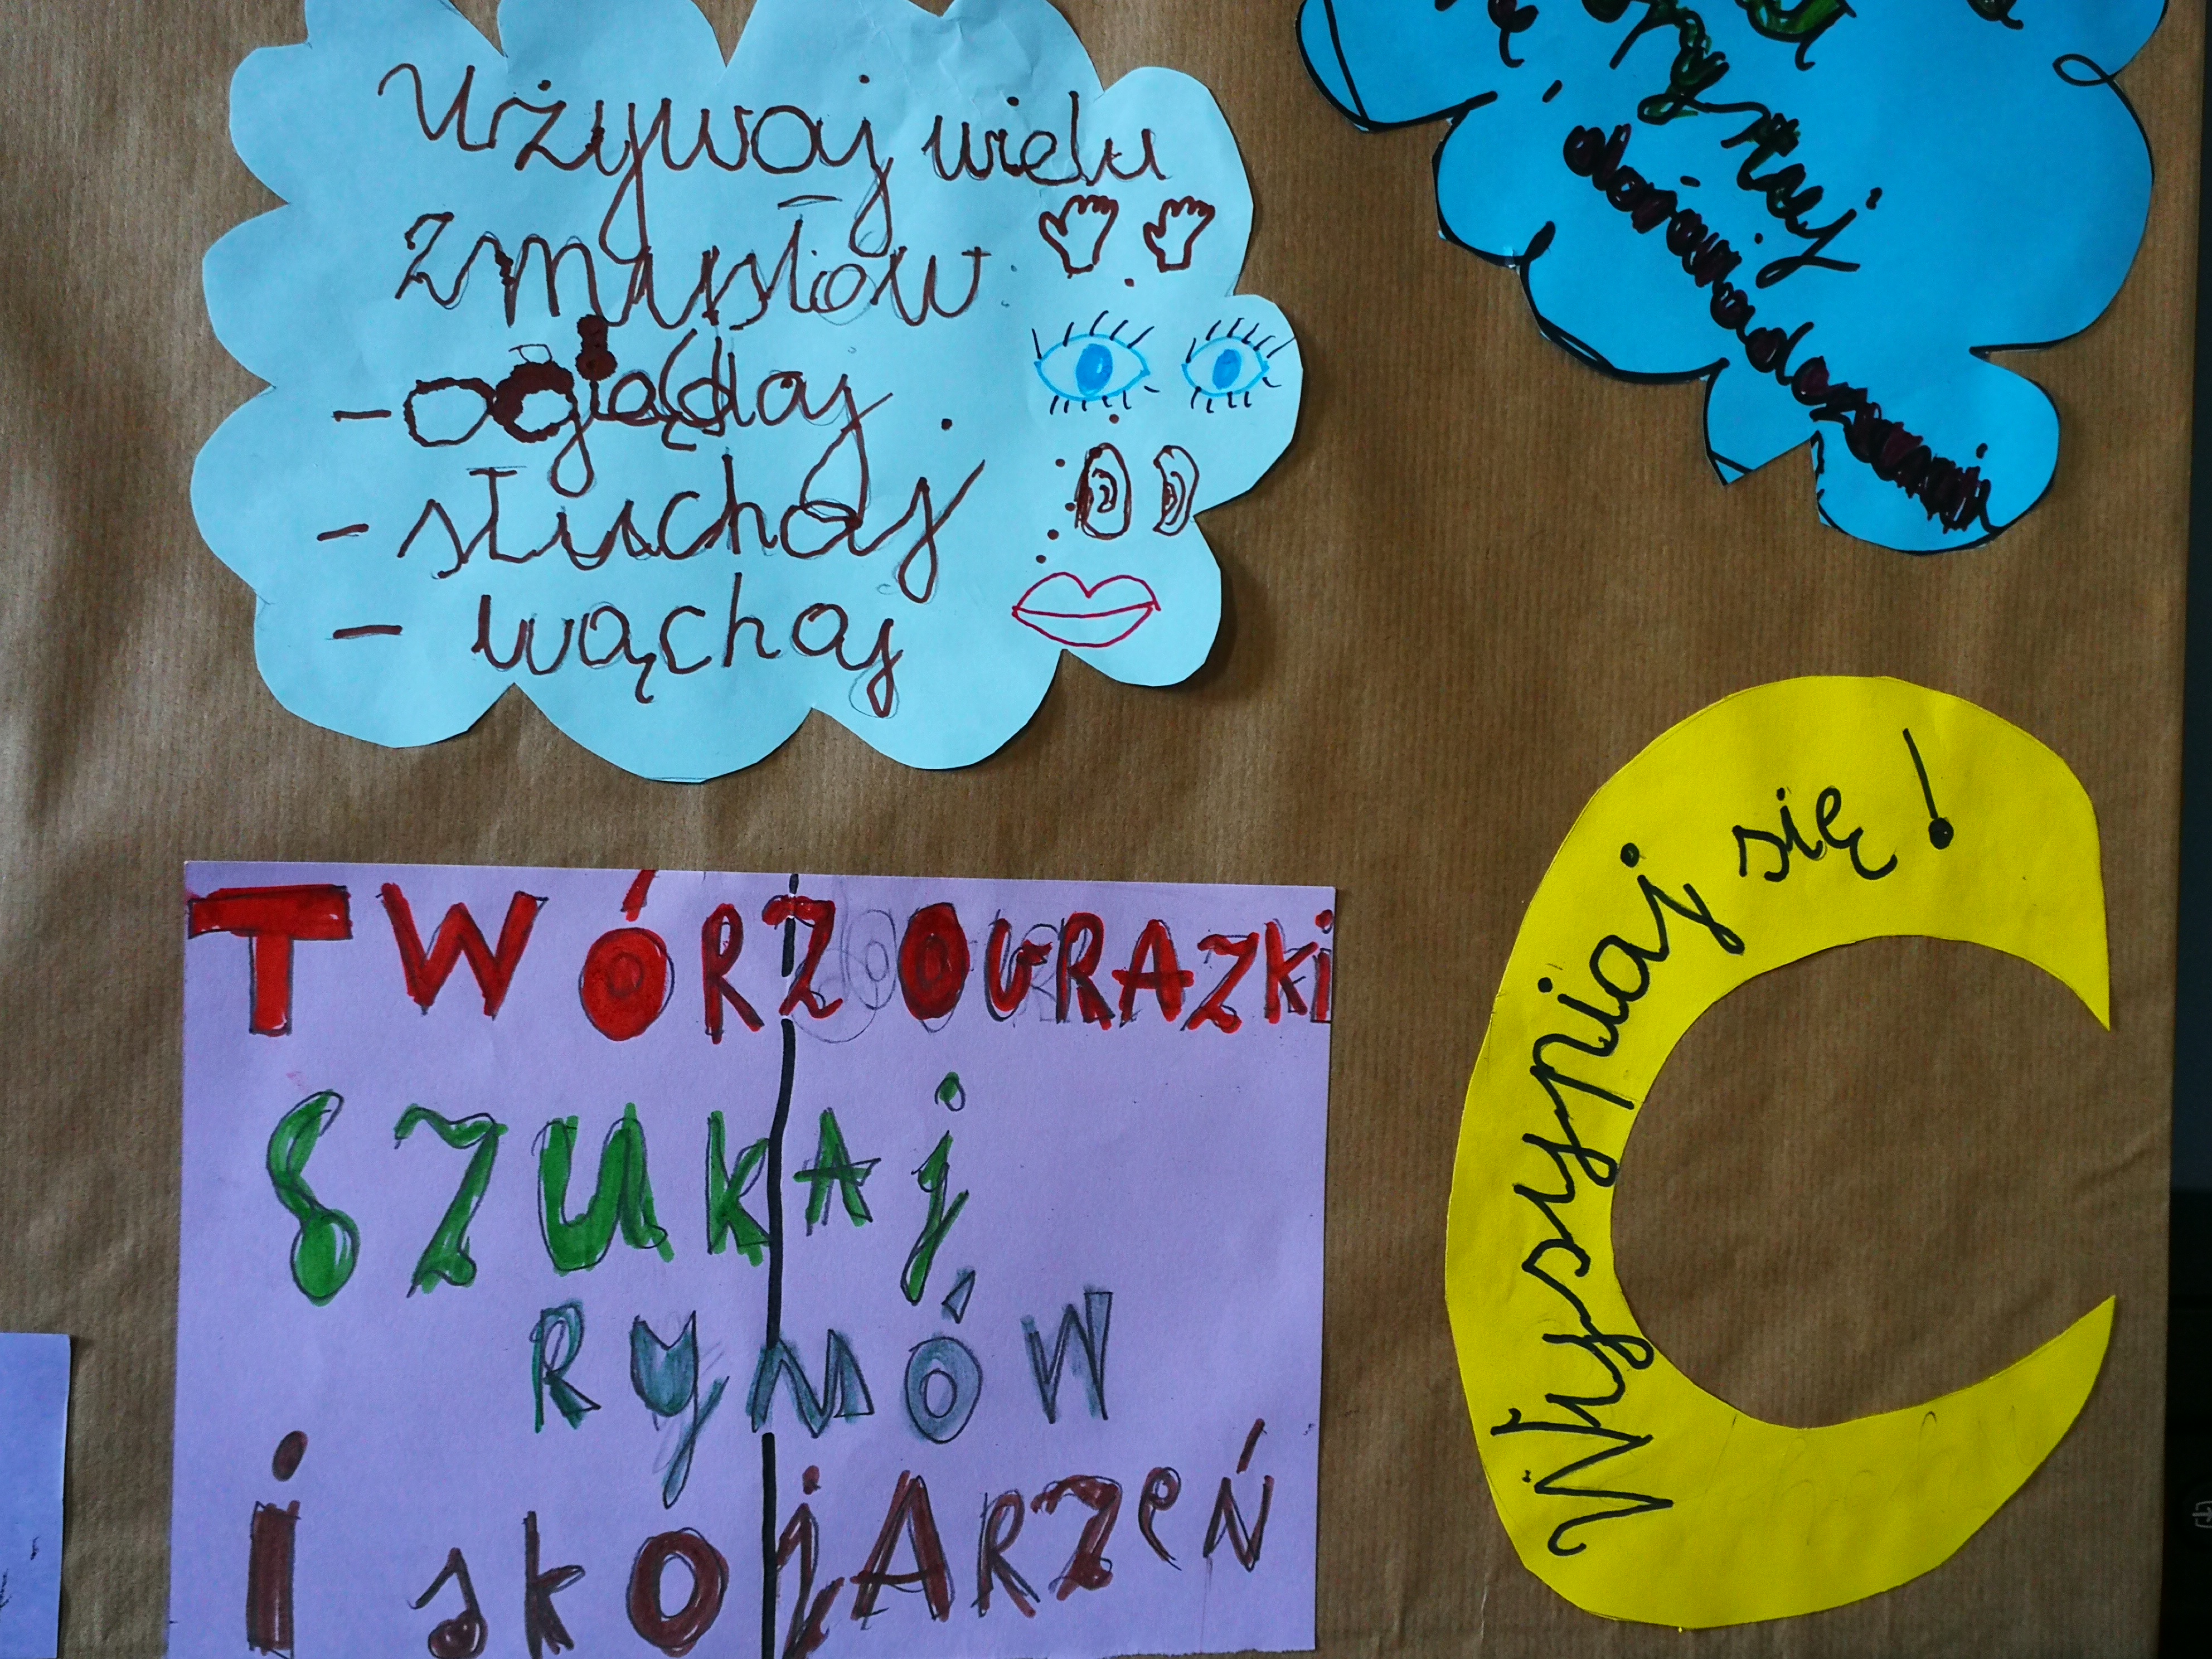 Używaj wielu
zmysłów
- oglądaj
- słuchaj
- wąchaj
korzystaj
doświadczenia
TWÓRZ OBRAZKI
SZUKAJ
RYMÓW
i skojARZeŃ
Wysypiaj się!